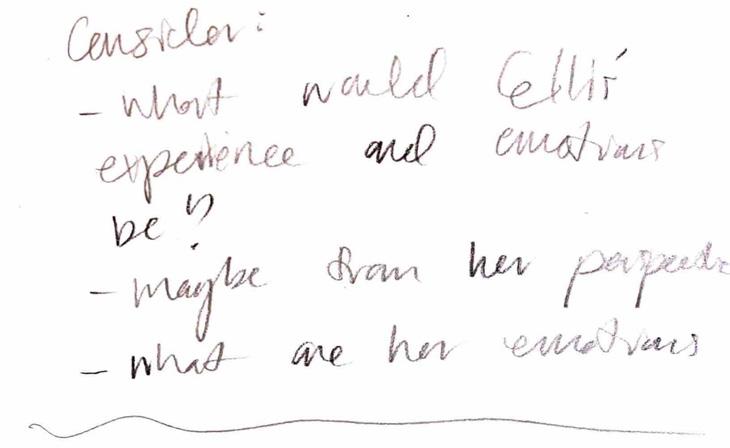 Consider:
- what would
experience and emotions
be?
- maybe from her
- what are her emotions